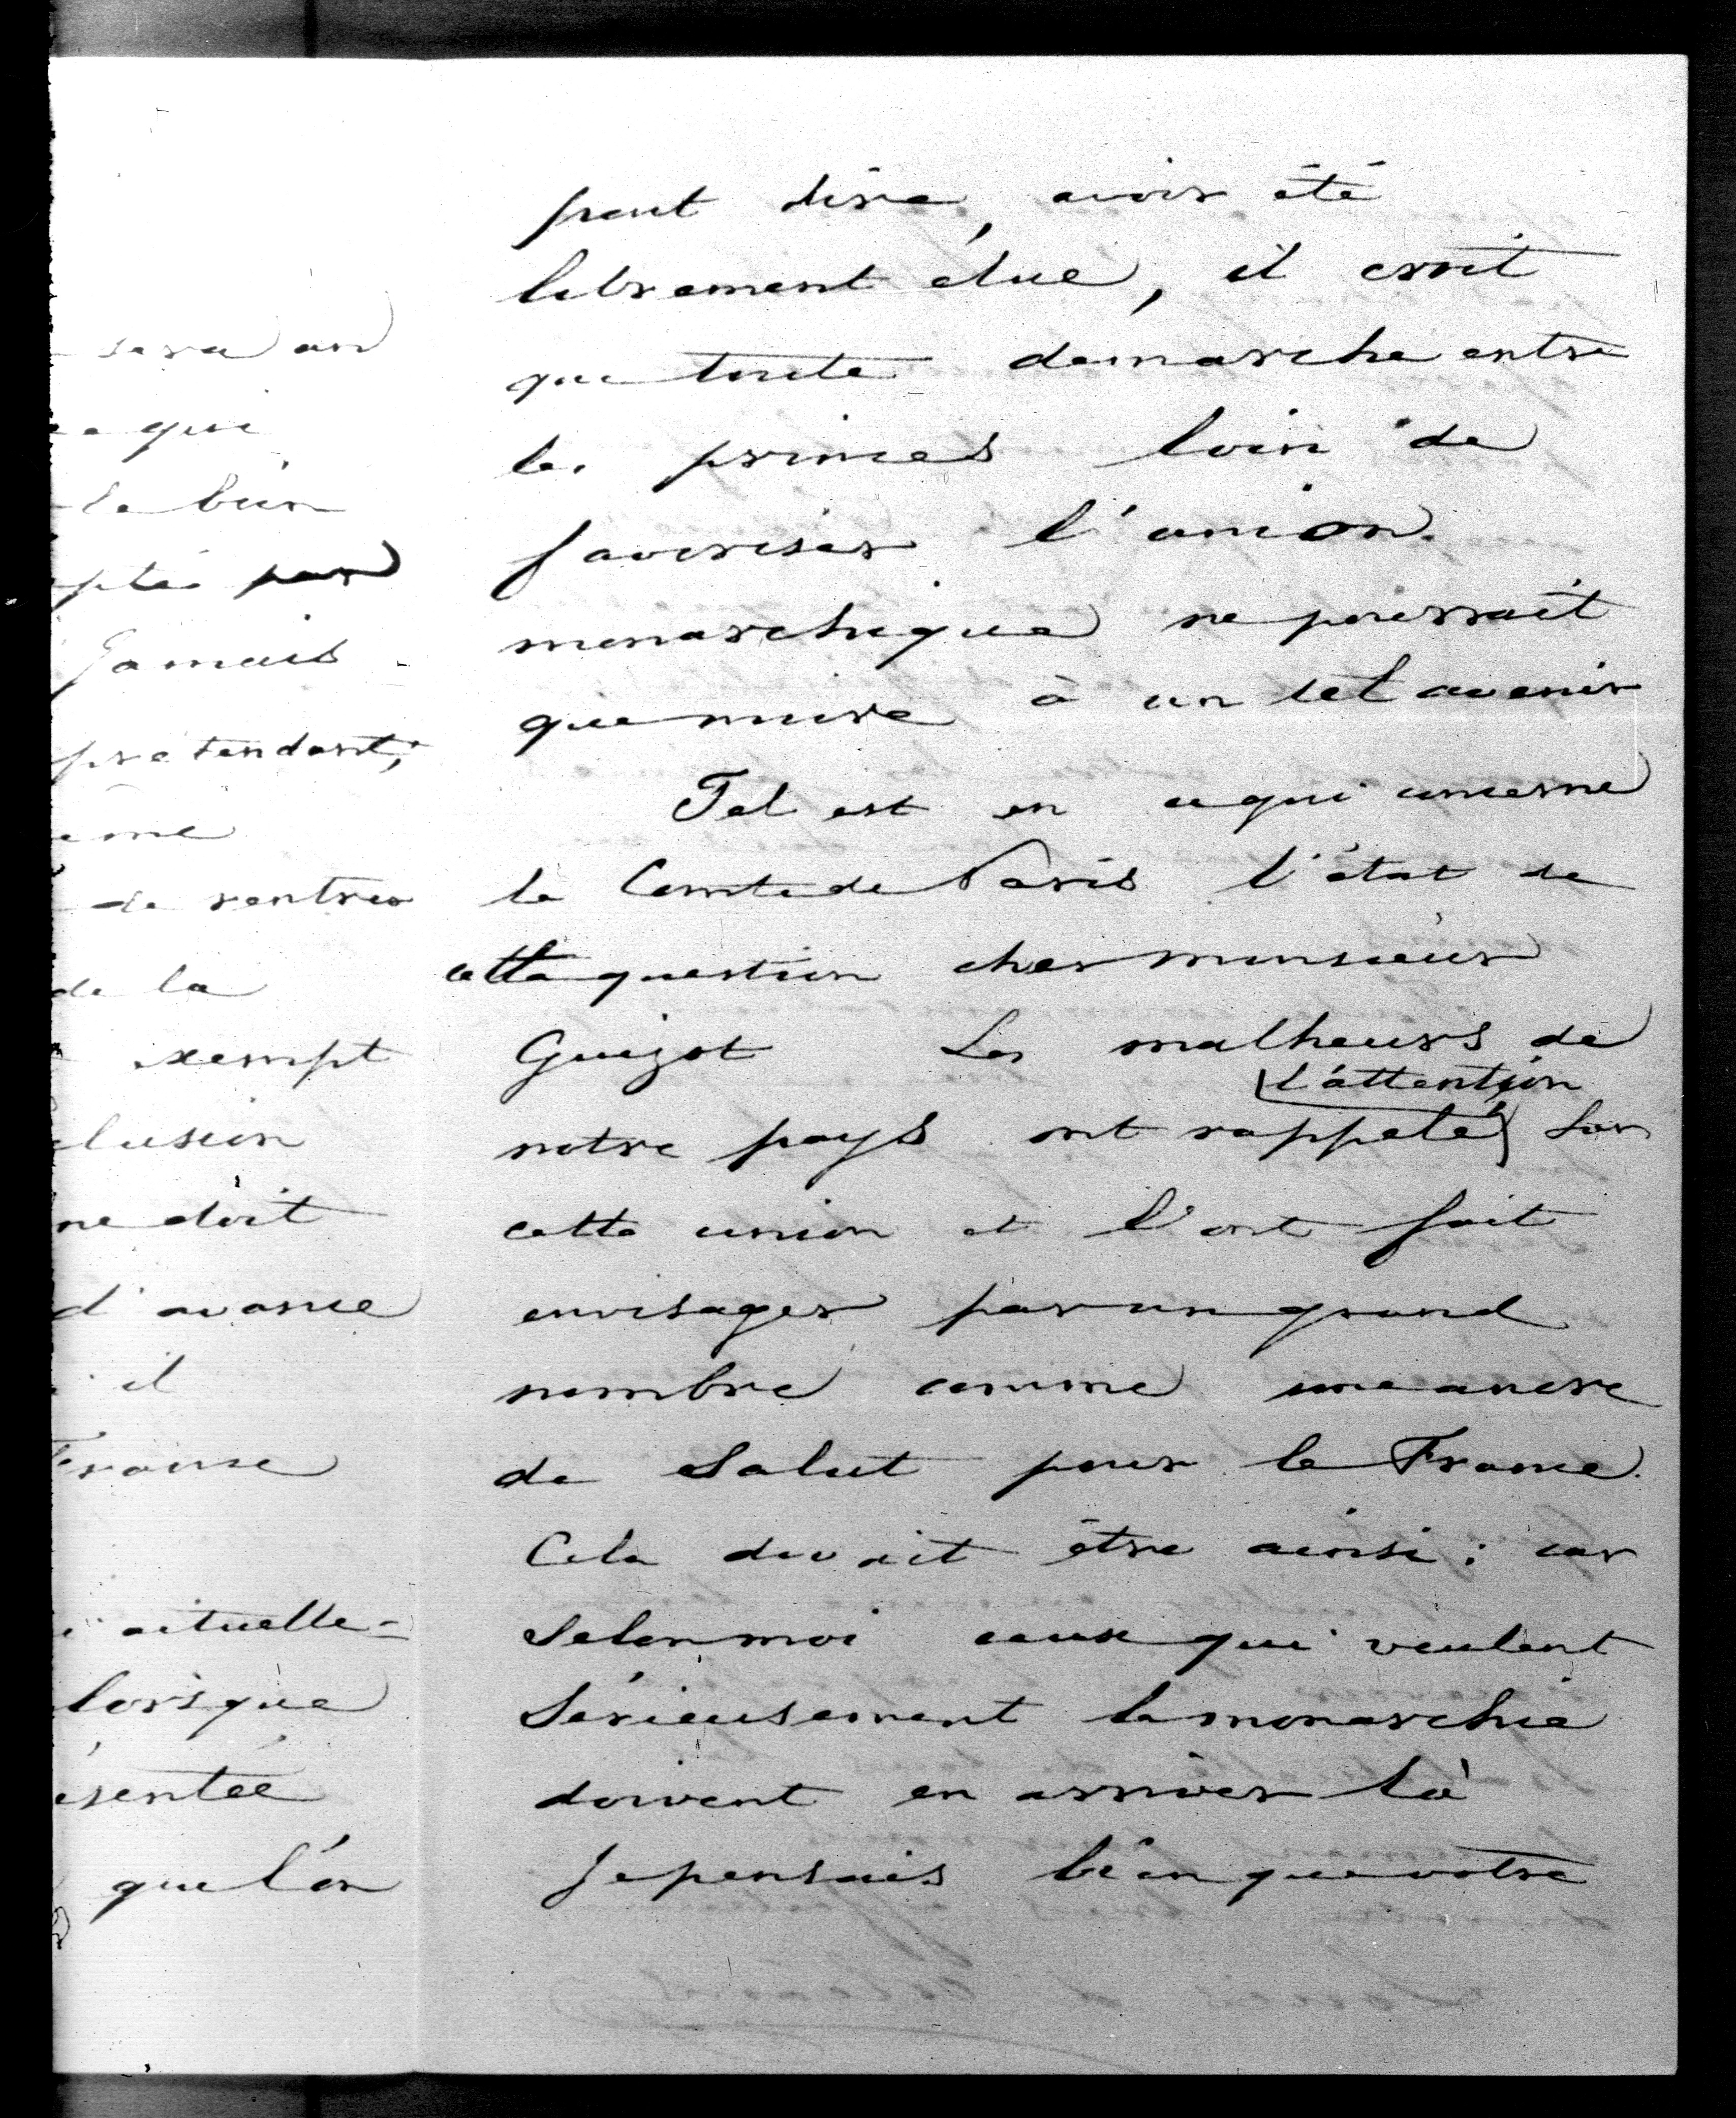 sera un
qui
le bien
ptée par
Jamais
prétendant,
me
de rentrer
de la
exempt
lusion
ne doit
d'avance
il
France
actuelle-
lorsque
ésentée
que l'on
peut dire, avoir été
librement élue, il croit
que toute demarche entre
les princes loin de
favoriser l'union
monarchique ne pourrait
que nuire à un tel avenir
Tel est en ce qui concerne
le Comte de Paris l'état de
cette question cher monsieur
Guizot Les malheurs de
l'attention
notre pays ont rappelé sur
cette union et l'ont fait
envisager par un grand
nombre comme une ancre
de Salut pour la France.
Cela devait être ainsi : car
Selon moi ceux qui veulent
Sérieusement la monarchie
doivent en arriver là
Je pensais bien que votre